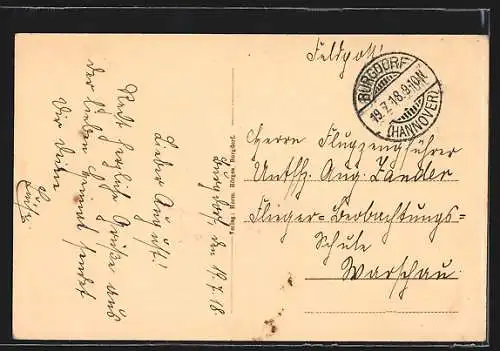 Burgdorf, den 19.7.18
Lieber August!
Recht herzliche Grüße aus
der lieben Heimat sendet
Dir Deine
Luise
Verlag: Herm. Hörgen, Burgdorf.
Feldpost!
BURGDORF
19.7.18.9-10N.
(HANNOVER)
Herrn Flugzeugführer
Untffz. Aug. Zander
Flieger-Beobachtungs-
Schule
Warschau